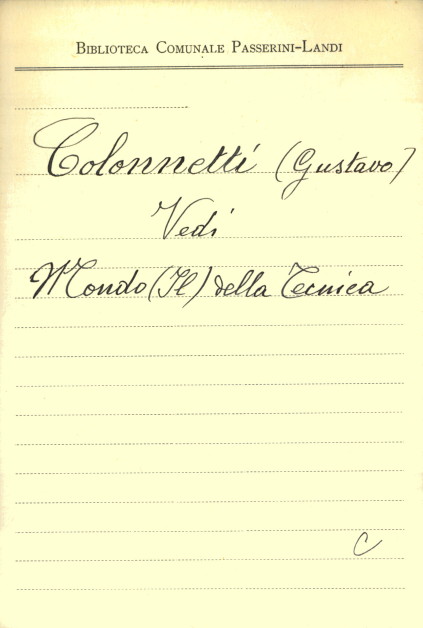 Biblioteca Comunale Passerini-Landi
Colonnetti (Gustavo)
Vedi
Mondo (Il) della Tecnica
C